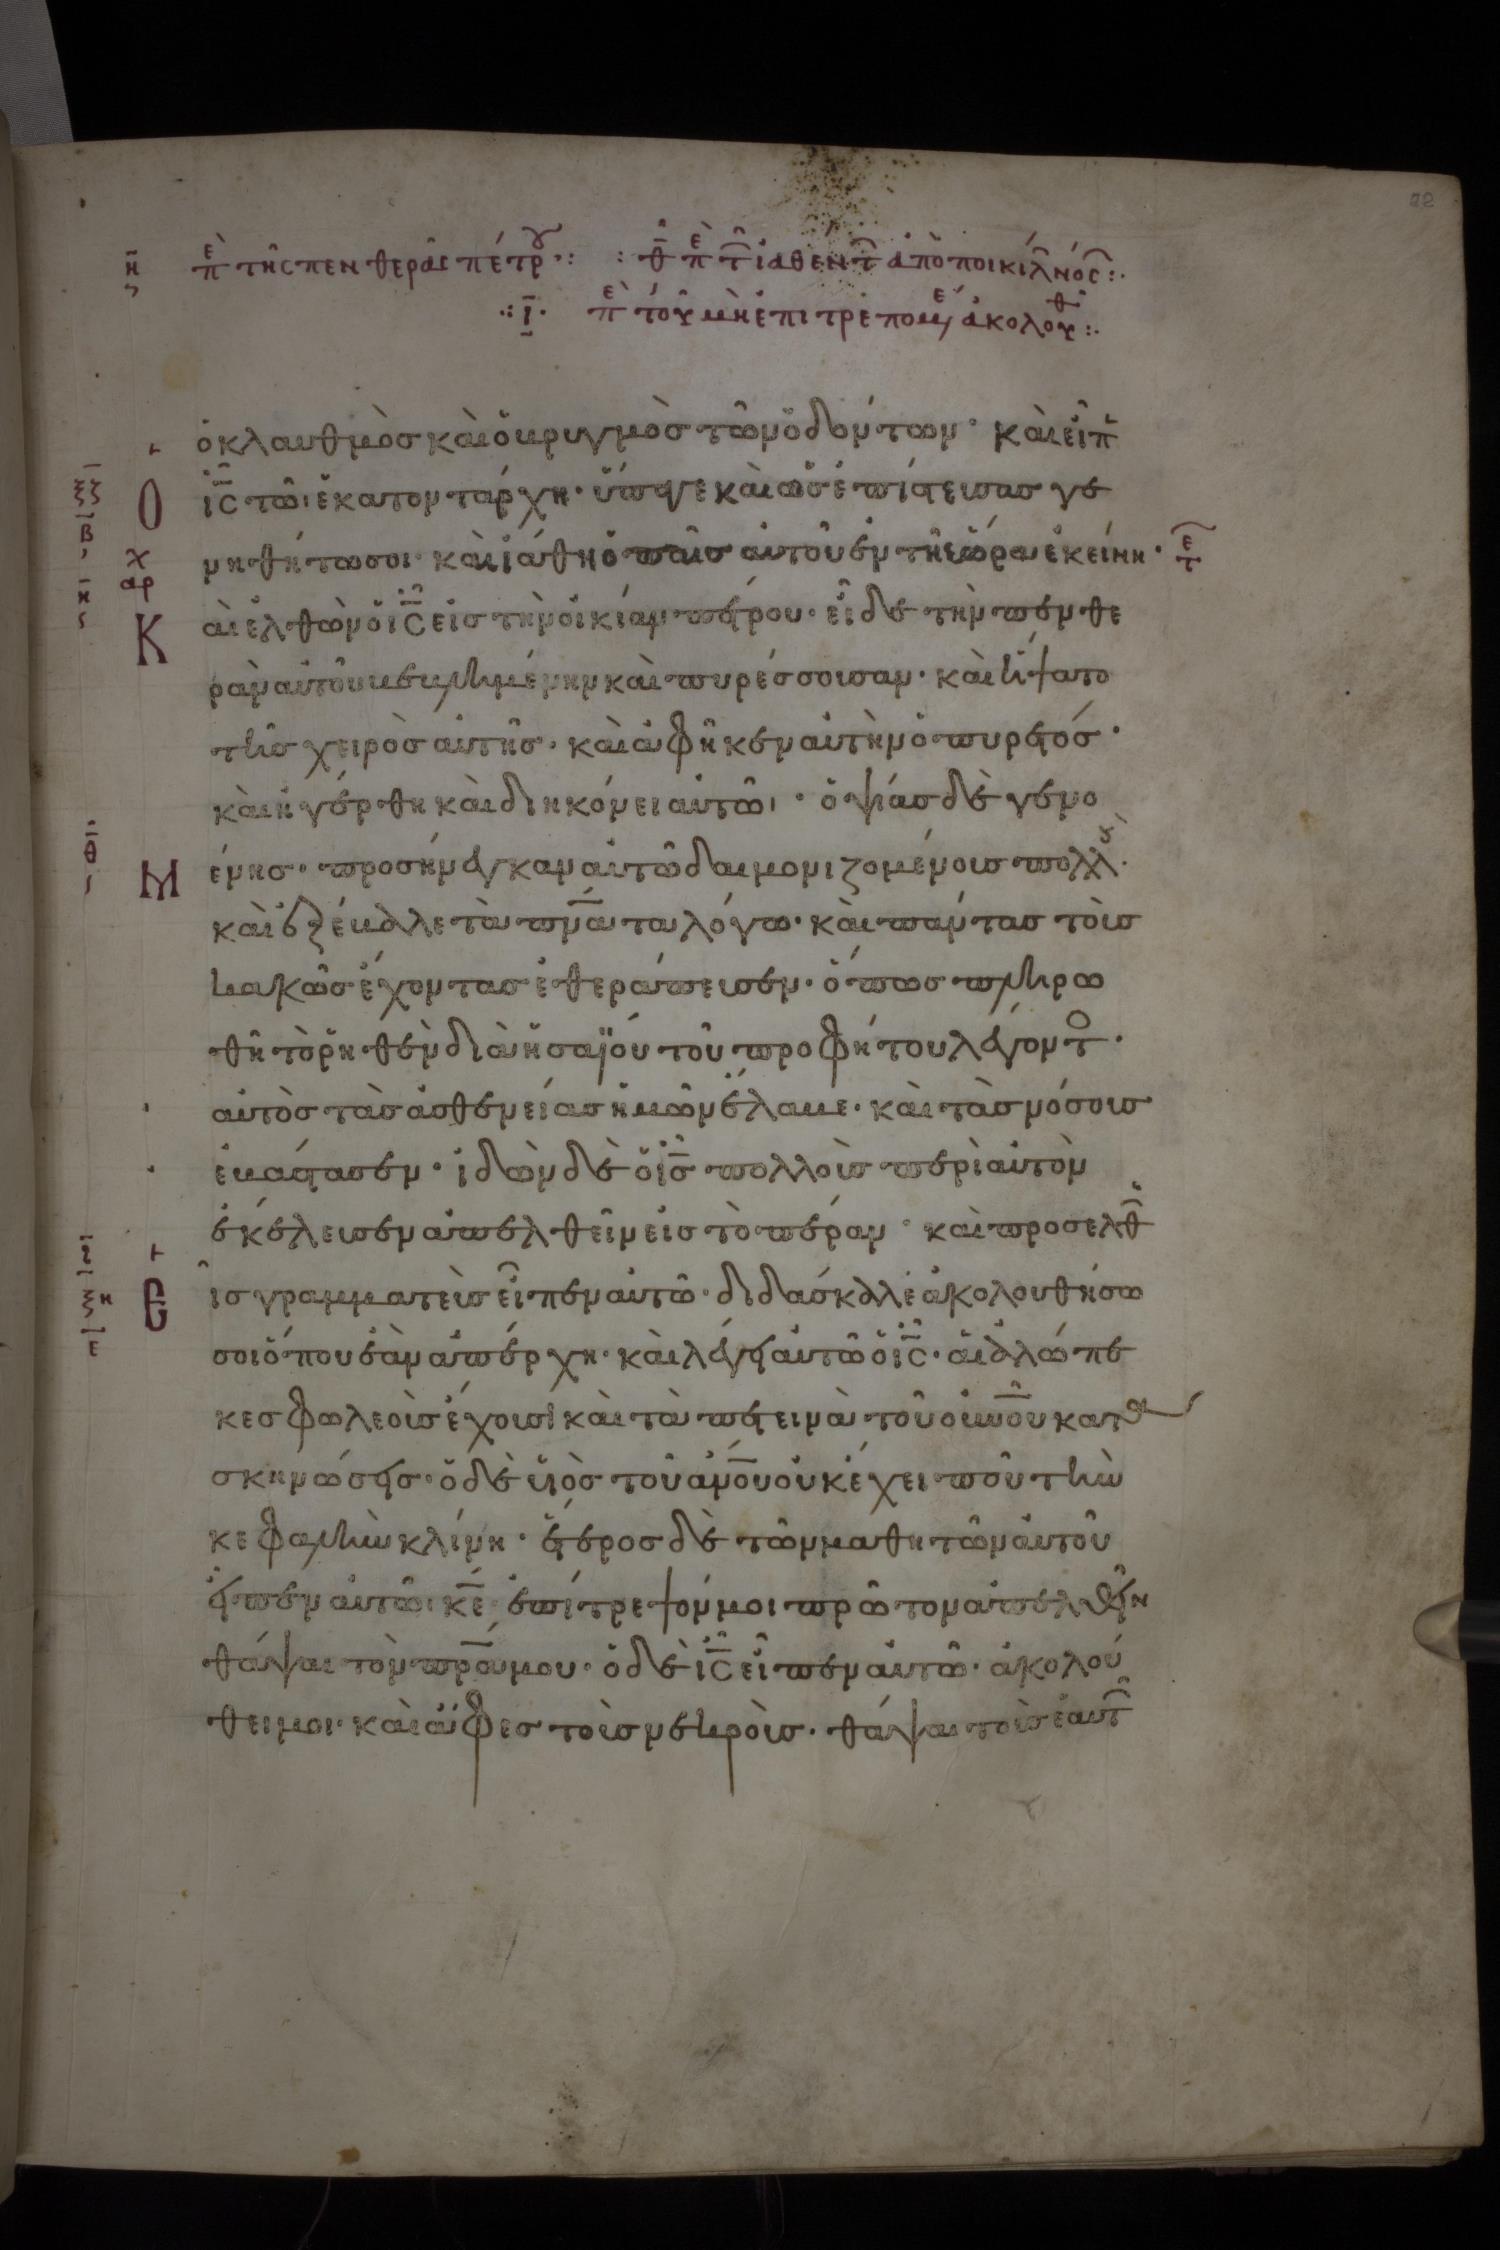 η πε τῆς πενθερᾶς πέτρου :· :θ πε τ ἰαθέντ ἀπὸ ποικίλ νόσ :·
·: ι · πε τοῦ μὴ ἐπιτρεπομε ἀκολουθ :·
ὁ κλαυθμὸσ καὶ ὁ βρυγμὸσ τῶν ὀδόντων · καὶ εἶπ
ξζ Ο ἰς τῶι ἑκατοντάρχη · ὕπαγε καὶ ὡς ἐπίστευσας γε
β χ νηθήτω σοι · καὶ ἰάθη ὁ παῖσ αὐτοῦ ἐν τῆ ὥρα ἐκείνη · τε
αρ
η Κ αὶ ἐλθὼν ὁ ἰς εἰσ τὴν οἰκίαν πέτρου · εἶδε τὴν πενθε
ρὰν αὐτοῦ βεβλημένην καὶ πυρέσσουσαν · καὶ ἥψατο
τῆσ χειρὸσ αὐτῆσ · καὶ ἀφῆκεν αὐτὴν ὁ πυρετόσ ·
καὶ ἠγέρθη καὶ διηκόνει αὐτῶι · ὀψίασ δὲ γενο
θ Μ ένησ · προσήνεγκαν αὐτῶ δαιμονιζομένουσ πολλ ·
καὶ ἐξέβαλε τὰ πνατα λόγω · καὶ πάντασ τοὺσ
κακῶσ ἔχοντασ ἐθεράπευσεν · ὅπωσ πληρω
θῆ τὸ ῥηθὲν διὰ ἠσαϊου τοῦ προφήτου λέγοντ ·
αὐτὸσ τὰσ ἀσθενείασ ἡμῶν ἔλαβε · καὶ τὰσ νόσουσ
ἐβάστασεν · ἰδὼν δὲ ὁ ισ πολλοὺσ περὶ αὐτὸν
ἐκέλευσεν ἀπελθεῖν εἰσ τὸ πέραν · καὶ προσελθ
ι ξη ε Ε ἷσ γραμματεὺσ εἶπεν αὐτῶ · διδάσκαλε ἀκολουθήσω
σοι ὅπου ἐὰν ἀπέρχη · καὶ λέγει αὐτῶ ὁ ις · αἱ ἀλώπε
κεσ φωλεοὺσ ἔχουσι καὶ τὰ πετεινὰ τοῦ οὐνου κατα
σκηνώσεισ · ὁ δὲ υἱὸσ τοῦ ανου οὐκ ἔχει ποῦ τὴν
κεφαλὴν κλίνη · ἕτεροσ δὲ τῶν μαθητῶν αὐτοῦ
εἶπεν αὐτῶι κε ἐπίτρεψόν μοι πρῶτον ἀπελθεῖν
θάψαι τὸν πρα μου · ὁ δὲ ις εἶπεν αὐτῶ · ἀκολού
θει μοι · καὶ ἄφεσ τοὺσ νεκροὺσ · θάψαι τοὺσ ἑαυτ